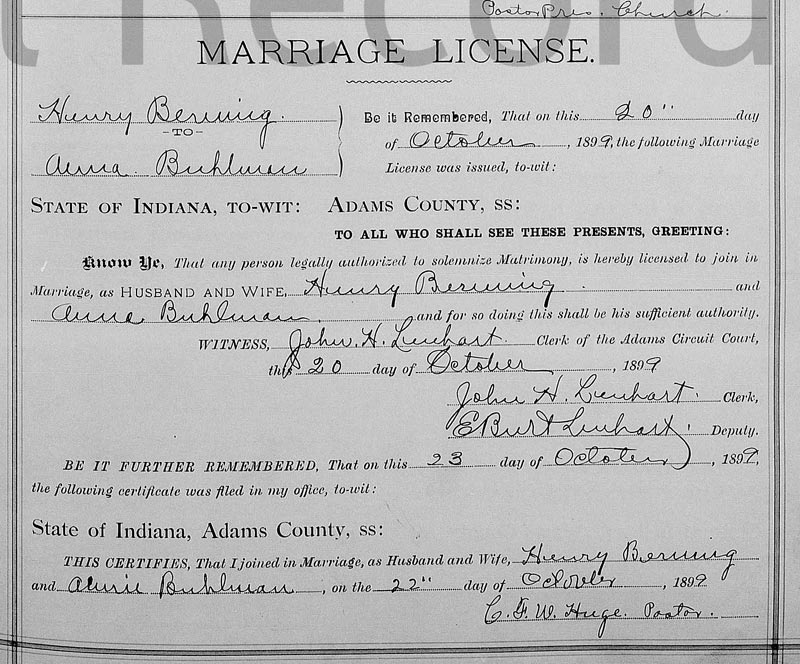 Pastor Pres. Church.
t Record
MARRIAGE LICENSE.
Henry Berning.
-TO-
Anna Buhlman
Be it Remembered, That on this 20" day
of October, 1899, the following Marriage
License was issued, to-wit:
STATE OF INDIANA, TO-WIT: ADAMS COUNTY, SS:
TO ALL WHO SHALL SEE THESE PRESENTS, GREETING:
Know Ye, That any person legally authorized to solemnize Matrimony, is hereby licensed to join in
Marriage, as HUSBAND AND WIFE, Henry Berning and
Anna Buhlman and for so doing this shall be his sufficient authority.
WITNESS, John H. Lenhart. Clerk of the Adams Circuit Court,
this 20 day of October, 1899
John H. Lenhart. Clerk,
E Burt Lenhart. Deputy.
BE IT FURTHER REMEMBERED, That on this 23 day of October, 1899,
the following certificate was filed in my office, to-wit:
State of Indiana, Adams County, ss:
THIS CERTIFIES, That I joined in Marriage, as Husband and Wife, Henry Berning
and Annie Buhlman, on the 22" day of October, 1899
C. F. W. Huge. Pastor.